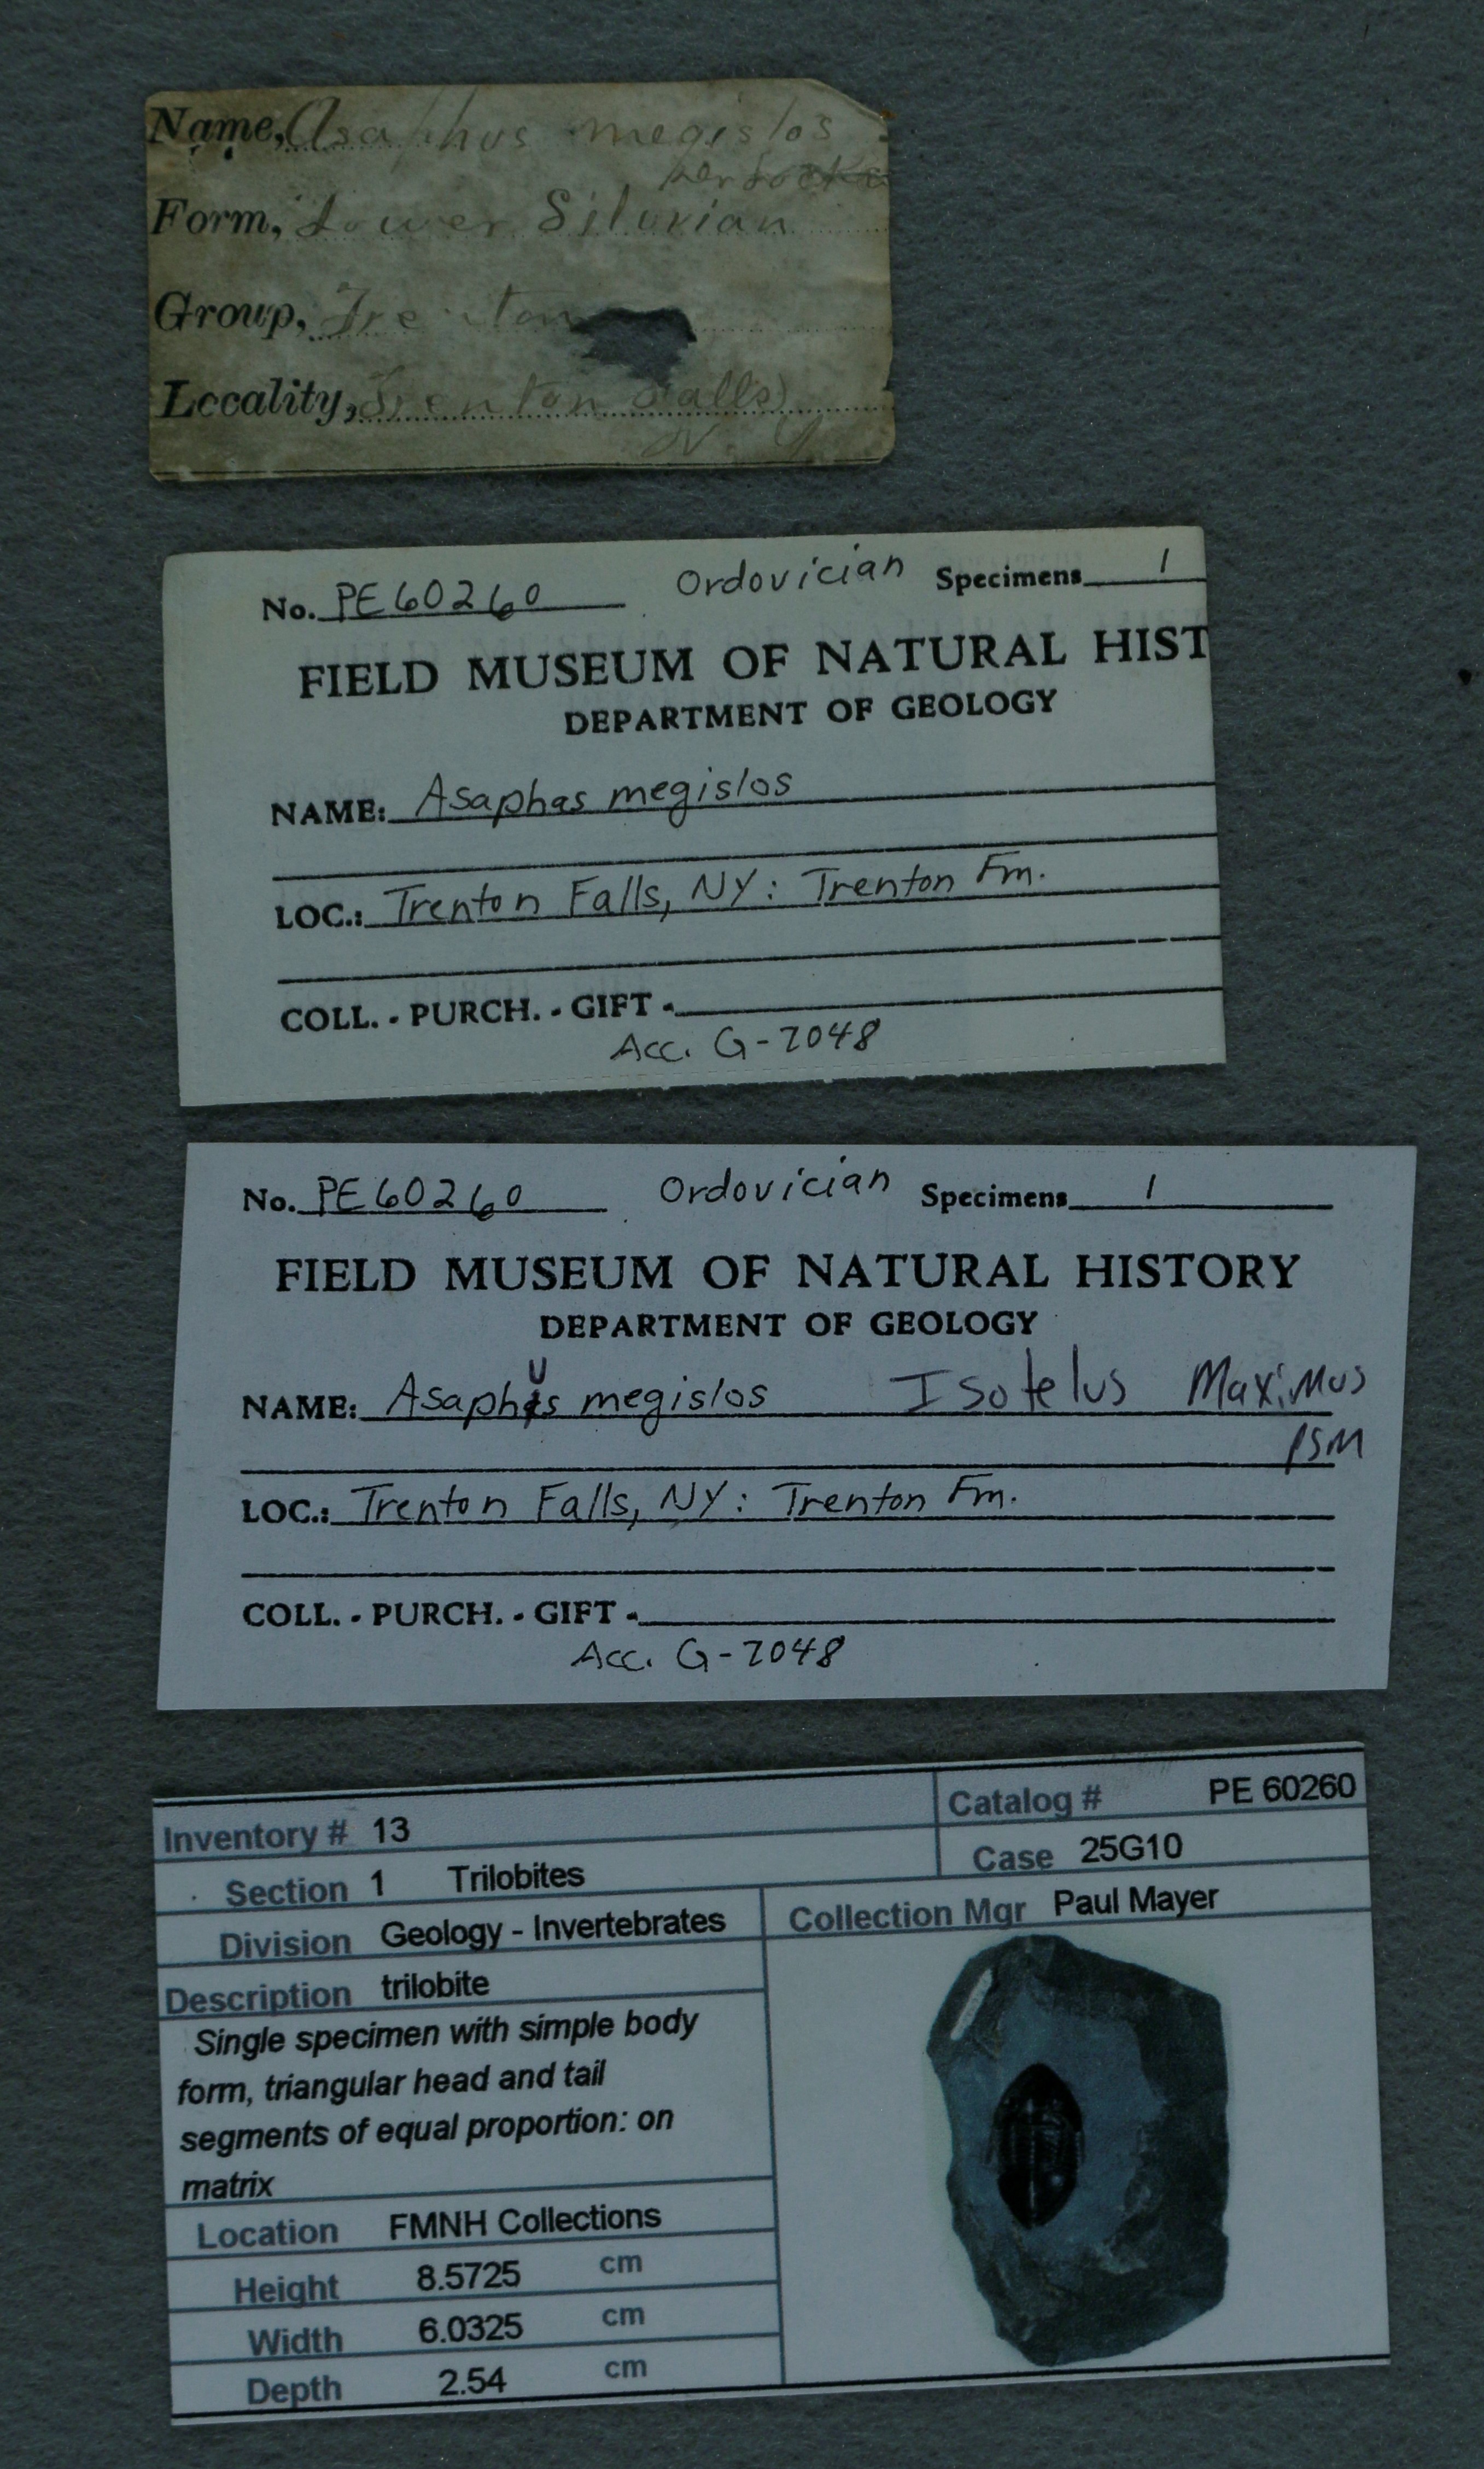 Name, Asaphus megislos
Form, Lower Silurian
Group, Trenton
Locality, Trenton Falls
N. Y.
No. PE60260 Ordovician Specimens 1
FIELD MUSEUM OF NATURAL HIST
DEPARTMENT OF GEOLOGY
NAME: Asaphas megislos
LOC.: Trenton Falls, NY: Trenton Fm.
COLL. - PURCH. - GIFT -
Acc. G-7048
No. PE60260 Ordovician Specimens 1
FIELD MUSEUM OF NATURAL HISTORY
DEPARTMENT OF GEOLOGY
NAME: Asaphus megislos Isotelus Maximus
PSM
LOC.: Trenton Falls, NY: Trenton Fm.
COLL. - PURCH. - GIFT -
Acc. G-7048
Inventory # 13 Catalog # PE 60260
Section 1 Trilobites Case 25G10
Division Geology - Invertebrates Collection Mgr Paul Mayer
Description trilobite
Single specimen with simple body
form, triangular head and tail
segments of equal proportion: on
matrix
Location FMNH Collections
Height 8.5725 cm
Width 6.0325 cm
Depth 2.54 cm